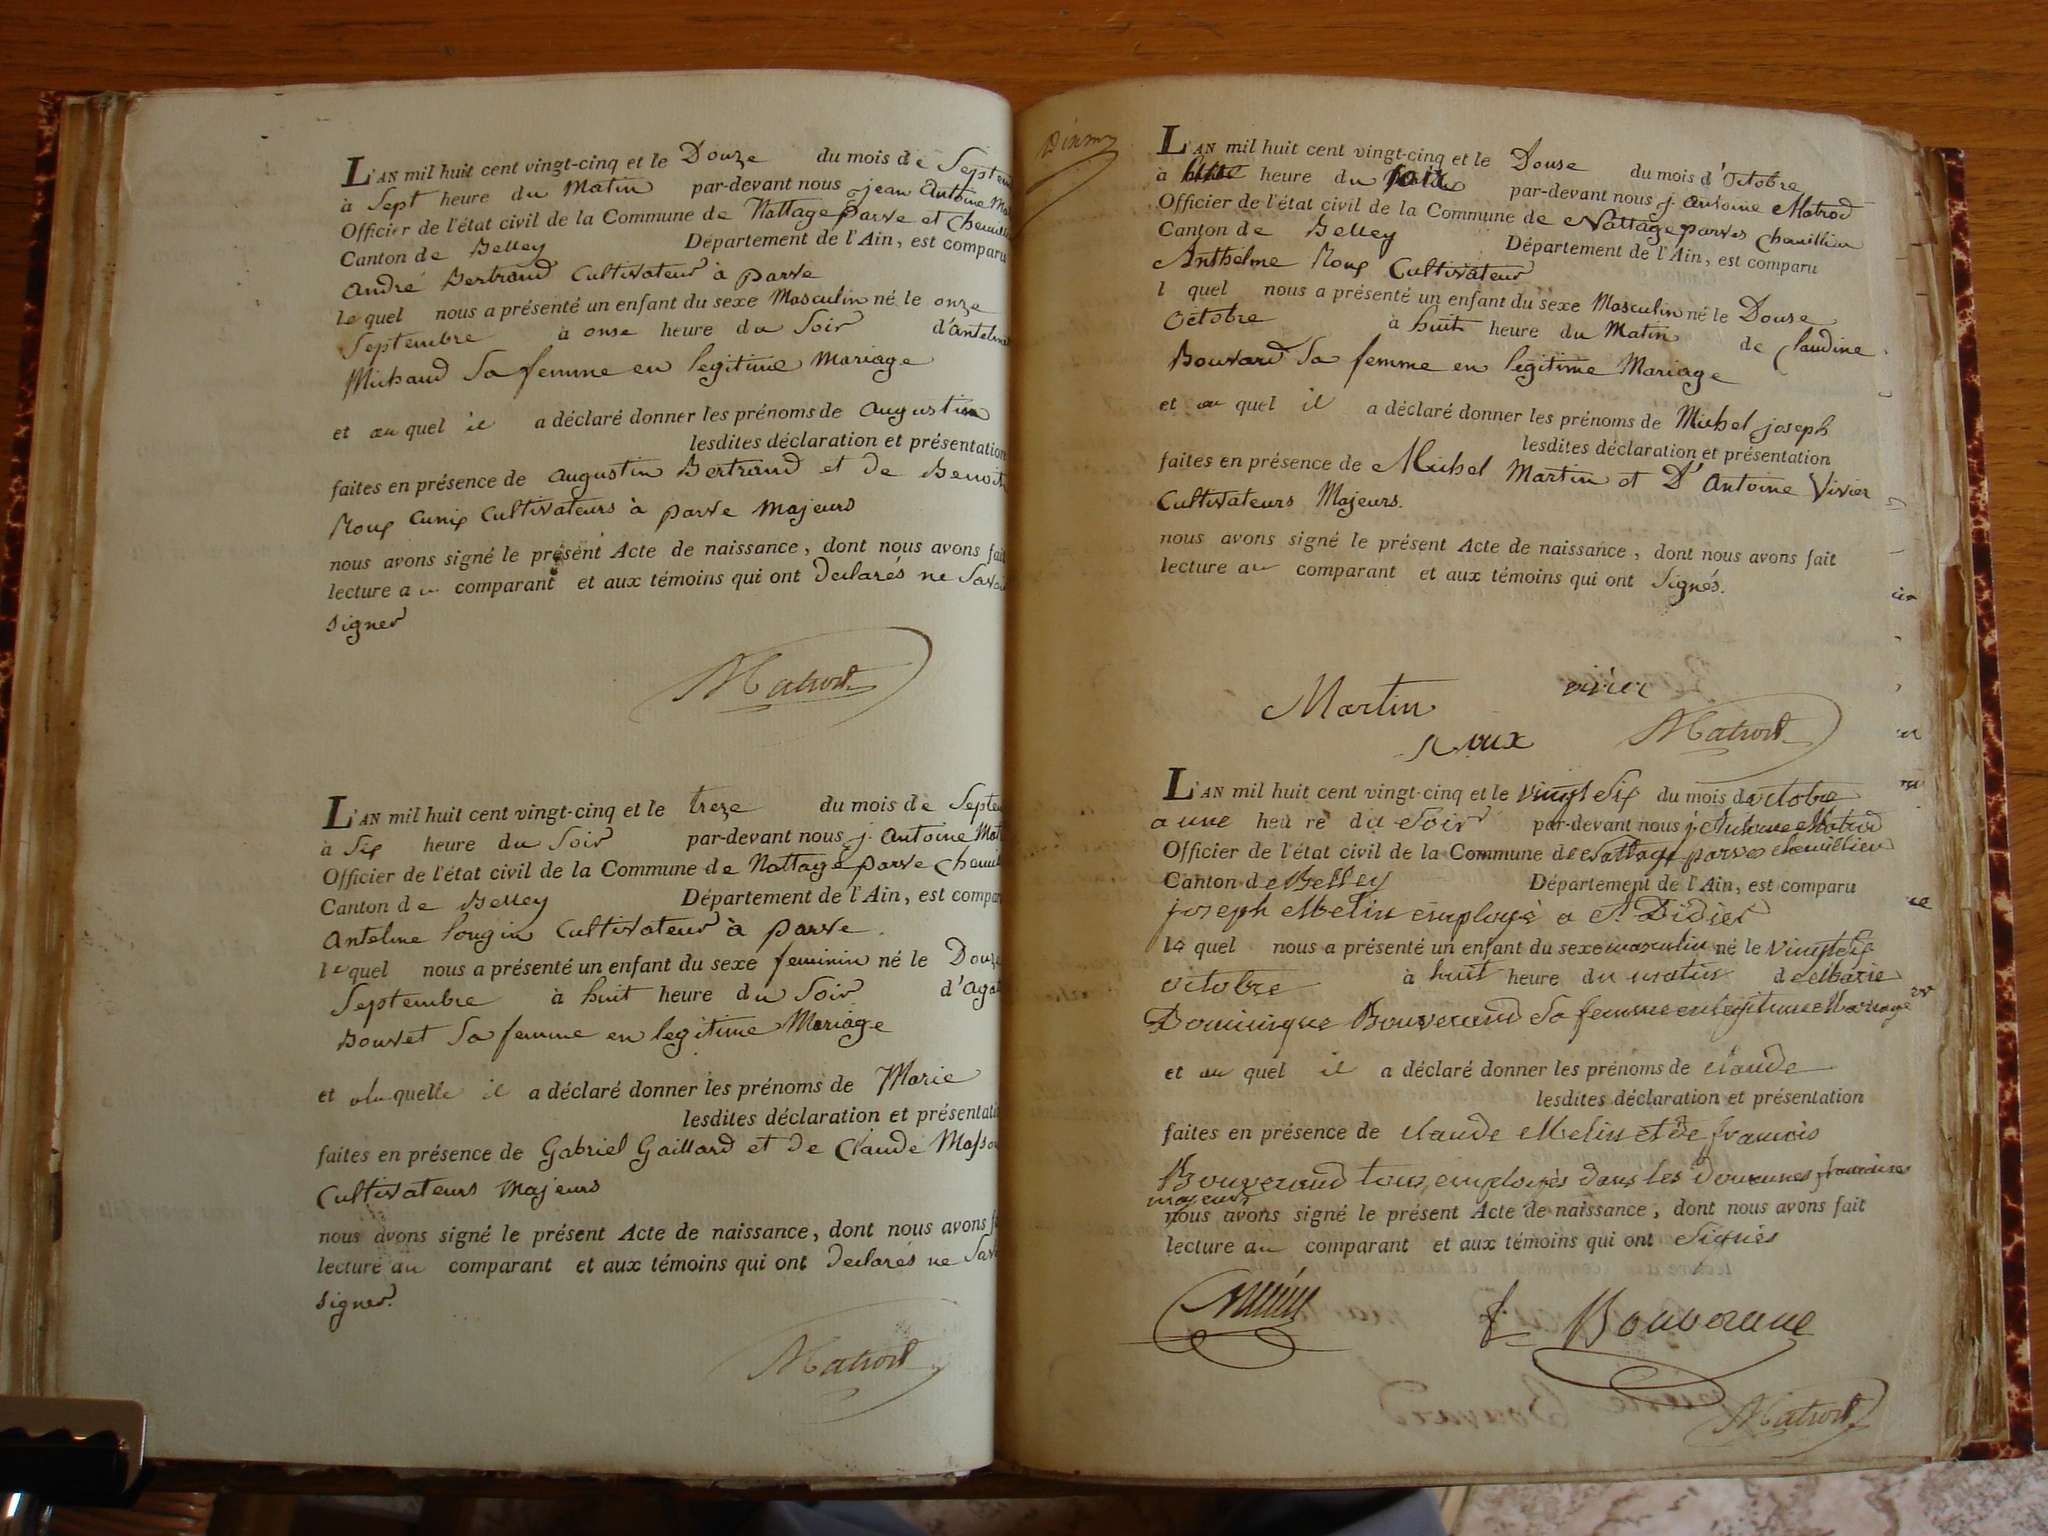 L'AN mil huit cent vingt-cinq et le Douze du mois de Septem
à Sept heure du Matin par-devant nous jean Antoine Ma
Officier de l'état civil de la Commune de Nattage parve et Chemilli
Canton de Belley Département de l'Ain, est comparu
André Bertrand Cultivateur à parve
le quel nous a présenté un enfant du sexe Masculin né le onze
Septembre à onse heure du Soir d'antelme
Michaud Sa femme en legitime Mariage
et au quel il a déclaré donner les prénoms de augustin
lesdites déclaration et présentation
faites en présence de augustin Bertrand et de Benoit
Roux Cultivateurs à parve Majeurs
nous avons signé le présent Acte de naissance, dont nous avons fait
lecture au comparant et aux témoins qui ont Declarés ne Savoi
Signer
Matrod
L'AN mil huit cent vingt-cinq et le treze du mois de Septem
à Six heure du Soir par-devant nous j. Antoine Mat
Officier de l'état civil de la Commune de Nattage parve Chemil
Canton de Belley Département de l'Ain, est compar
Antelme Cultivateur à parve
le quel nous a présenté un enfant du sexe feminin né le Douze
Septembre à huit heure du Soir d'Agat
Bouvet Sa femme en legitime Mariage
et a la quelle il a déclaré donner les prénoms de Marie
lesdites déclaration et présentatio
faites en présence de Gabriel Gaillard et de Claude Masso
Cultivateurs Majeurs
nous avons signé le présent Acte de naissance, dont nous avons f
lecture au comparant et aux témoins qui ont Declarés ne Sav
Signer.
Matrod
L'AN mil huit cent vingt-cinq et le Douse du mois d'Octobre
à heure du soir par-devant nous j. antoine Matrod
Officier de l'état civil de la Commune de Nattage parves Chemillieu
Canton de Belley Département de l'Ain, est comparu
Anthelme Roux Cultivateur
l quel nous a présenté un enfant du sexe Masculin né le Douse
Octobre à huit heure du Matin de Claudine
Bouvard Sa femme en legitime Mariage
et au quel il a déclaré donner les prénoms de Michel joseph
lesdites déclaration et présentation
faites en présence de Michel Martin et D'Antoine Vivier
Cultivateurs Majeurs.
nous avons signé le présent Acte de naissance, dont nous avons fait
lecture au comparant et aux témoins qui ont Signés.
Martin vivier
Roux Matrod
L'AN mil huit cent vingt-cinq et le vingt Six du mois doctobre
a une heu re du Soir par-devant nous j. Antoine Matrod
Officier de l'état civil de la Commune de Nattage parves chemillieu
Canton de Belley Département de l'Ain, est comparu
joseph Melin employé a St Didier
le quel nous a présenté un enfant du sexe masculin né le vingt Six
octobre à huit heure du matin de Marie
Dominique Bouverand Sa femme en legitime Mariage
et au quel il a déclaré donner les prénoms de claude
lesdites déclaration et présentation
faites en présence de claude Melin et de francois
Bouverand tous employés dans les Douannes francaises
majeurs
nous avons signé le présent Acte de naissance, dont nous avons fait
lecture au comparant et aux témoins qui ont Signés
f. Bouverand
Matrod